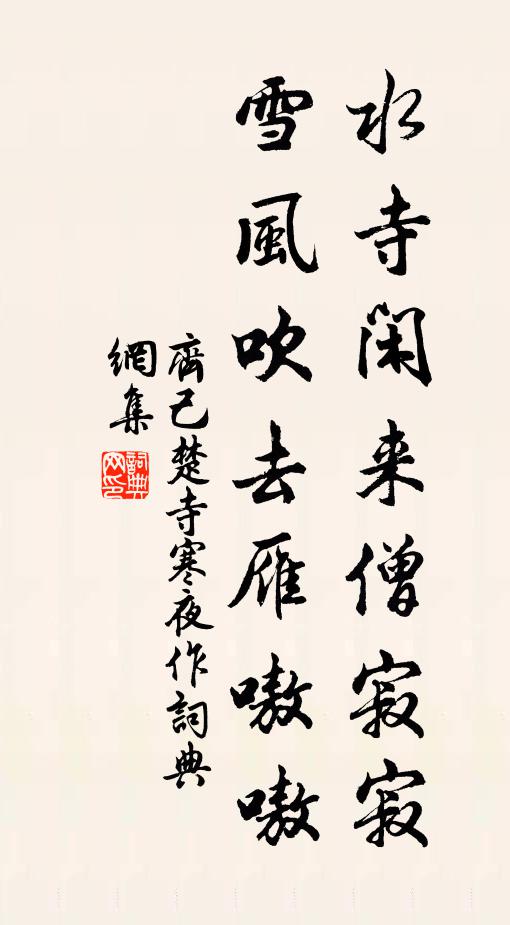 水寺閑来僧寂寂
雪風吹去雁嗷嗷
齊己楚寺寒夜作詞典
網集
詞典
网印